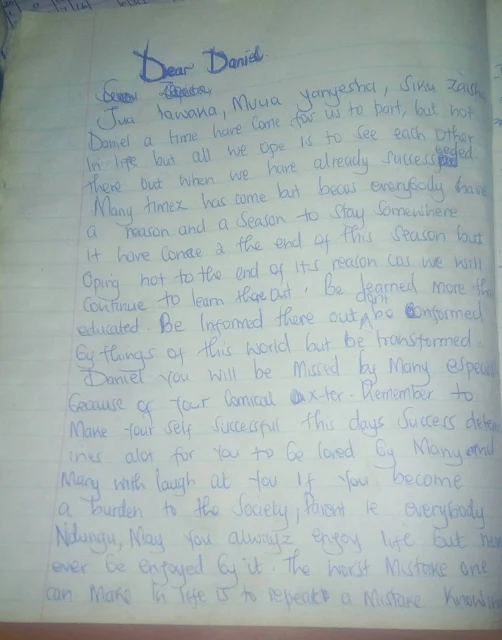 Dear Daniel
Jua tawaka, Mvua yanyesha, Siku zaisha
Daniel a time have come for us to part, but not
In life but all we ope is to see each other
there out when we have already succeeded
Many timex has come but becos everybody have
a reason and a Season to Stay Somewhere
it have come 2 the end of this season but
Oping not to the end of its reason cos we will
Continue to learn there out. Be learned more tha
educated. Be Informed there out don't be Conformed
By things of this world but be transformed.
Daniel you will be Missed by Many especia
because of Your Comical x-ter. Remember to
Make Your self Successful this days Success deter
ines alot for You to be loved by Many and
Many with laugh at You If You become
a burden to the Society, Parent ie everybody
Ndungu, May You alwayz enjoy life but
ever be enjoyed by it. The worst Mistake one
can Make In life is to repeat a Mistake Knowin